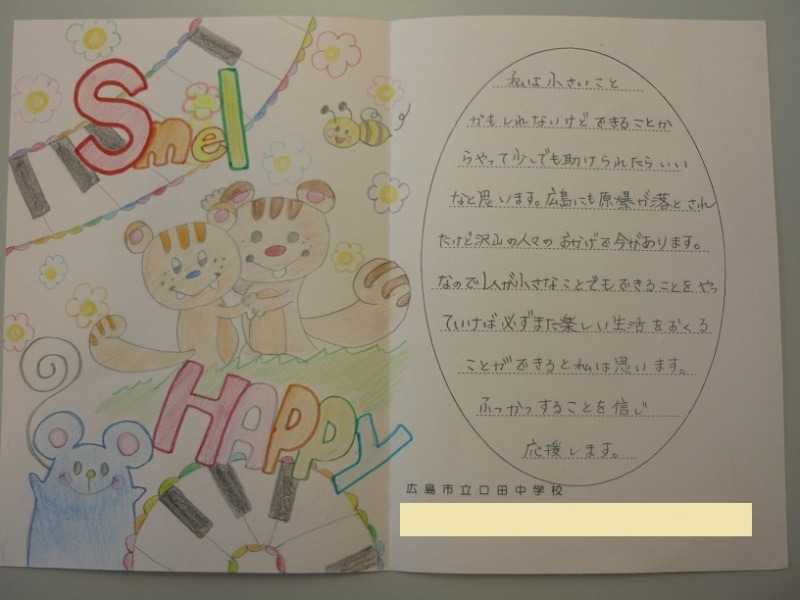 Smel
HAPPY
私は小さいこと
かもしれないけどできることか
らやって少しでも助けられたらいい
なと思います。広島にも原爆が落とされ
たけど沢山の人々のおかげで今があります。
なので1人が小さなことでもできることをやっ
ていけば必ずまた楽しい生活をおくる
ことができると私は思います。
ふっかつすることを信じ
応援します。
広島市立口田中学校